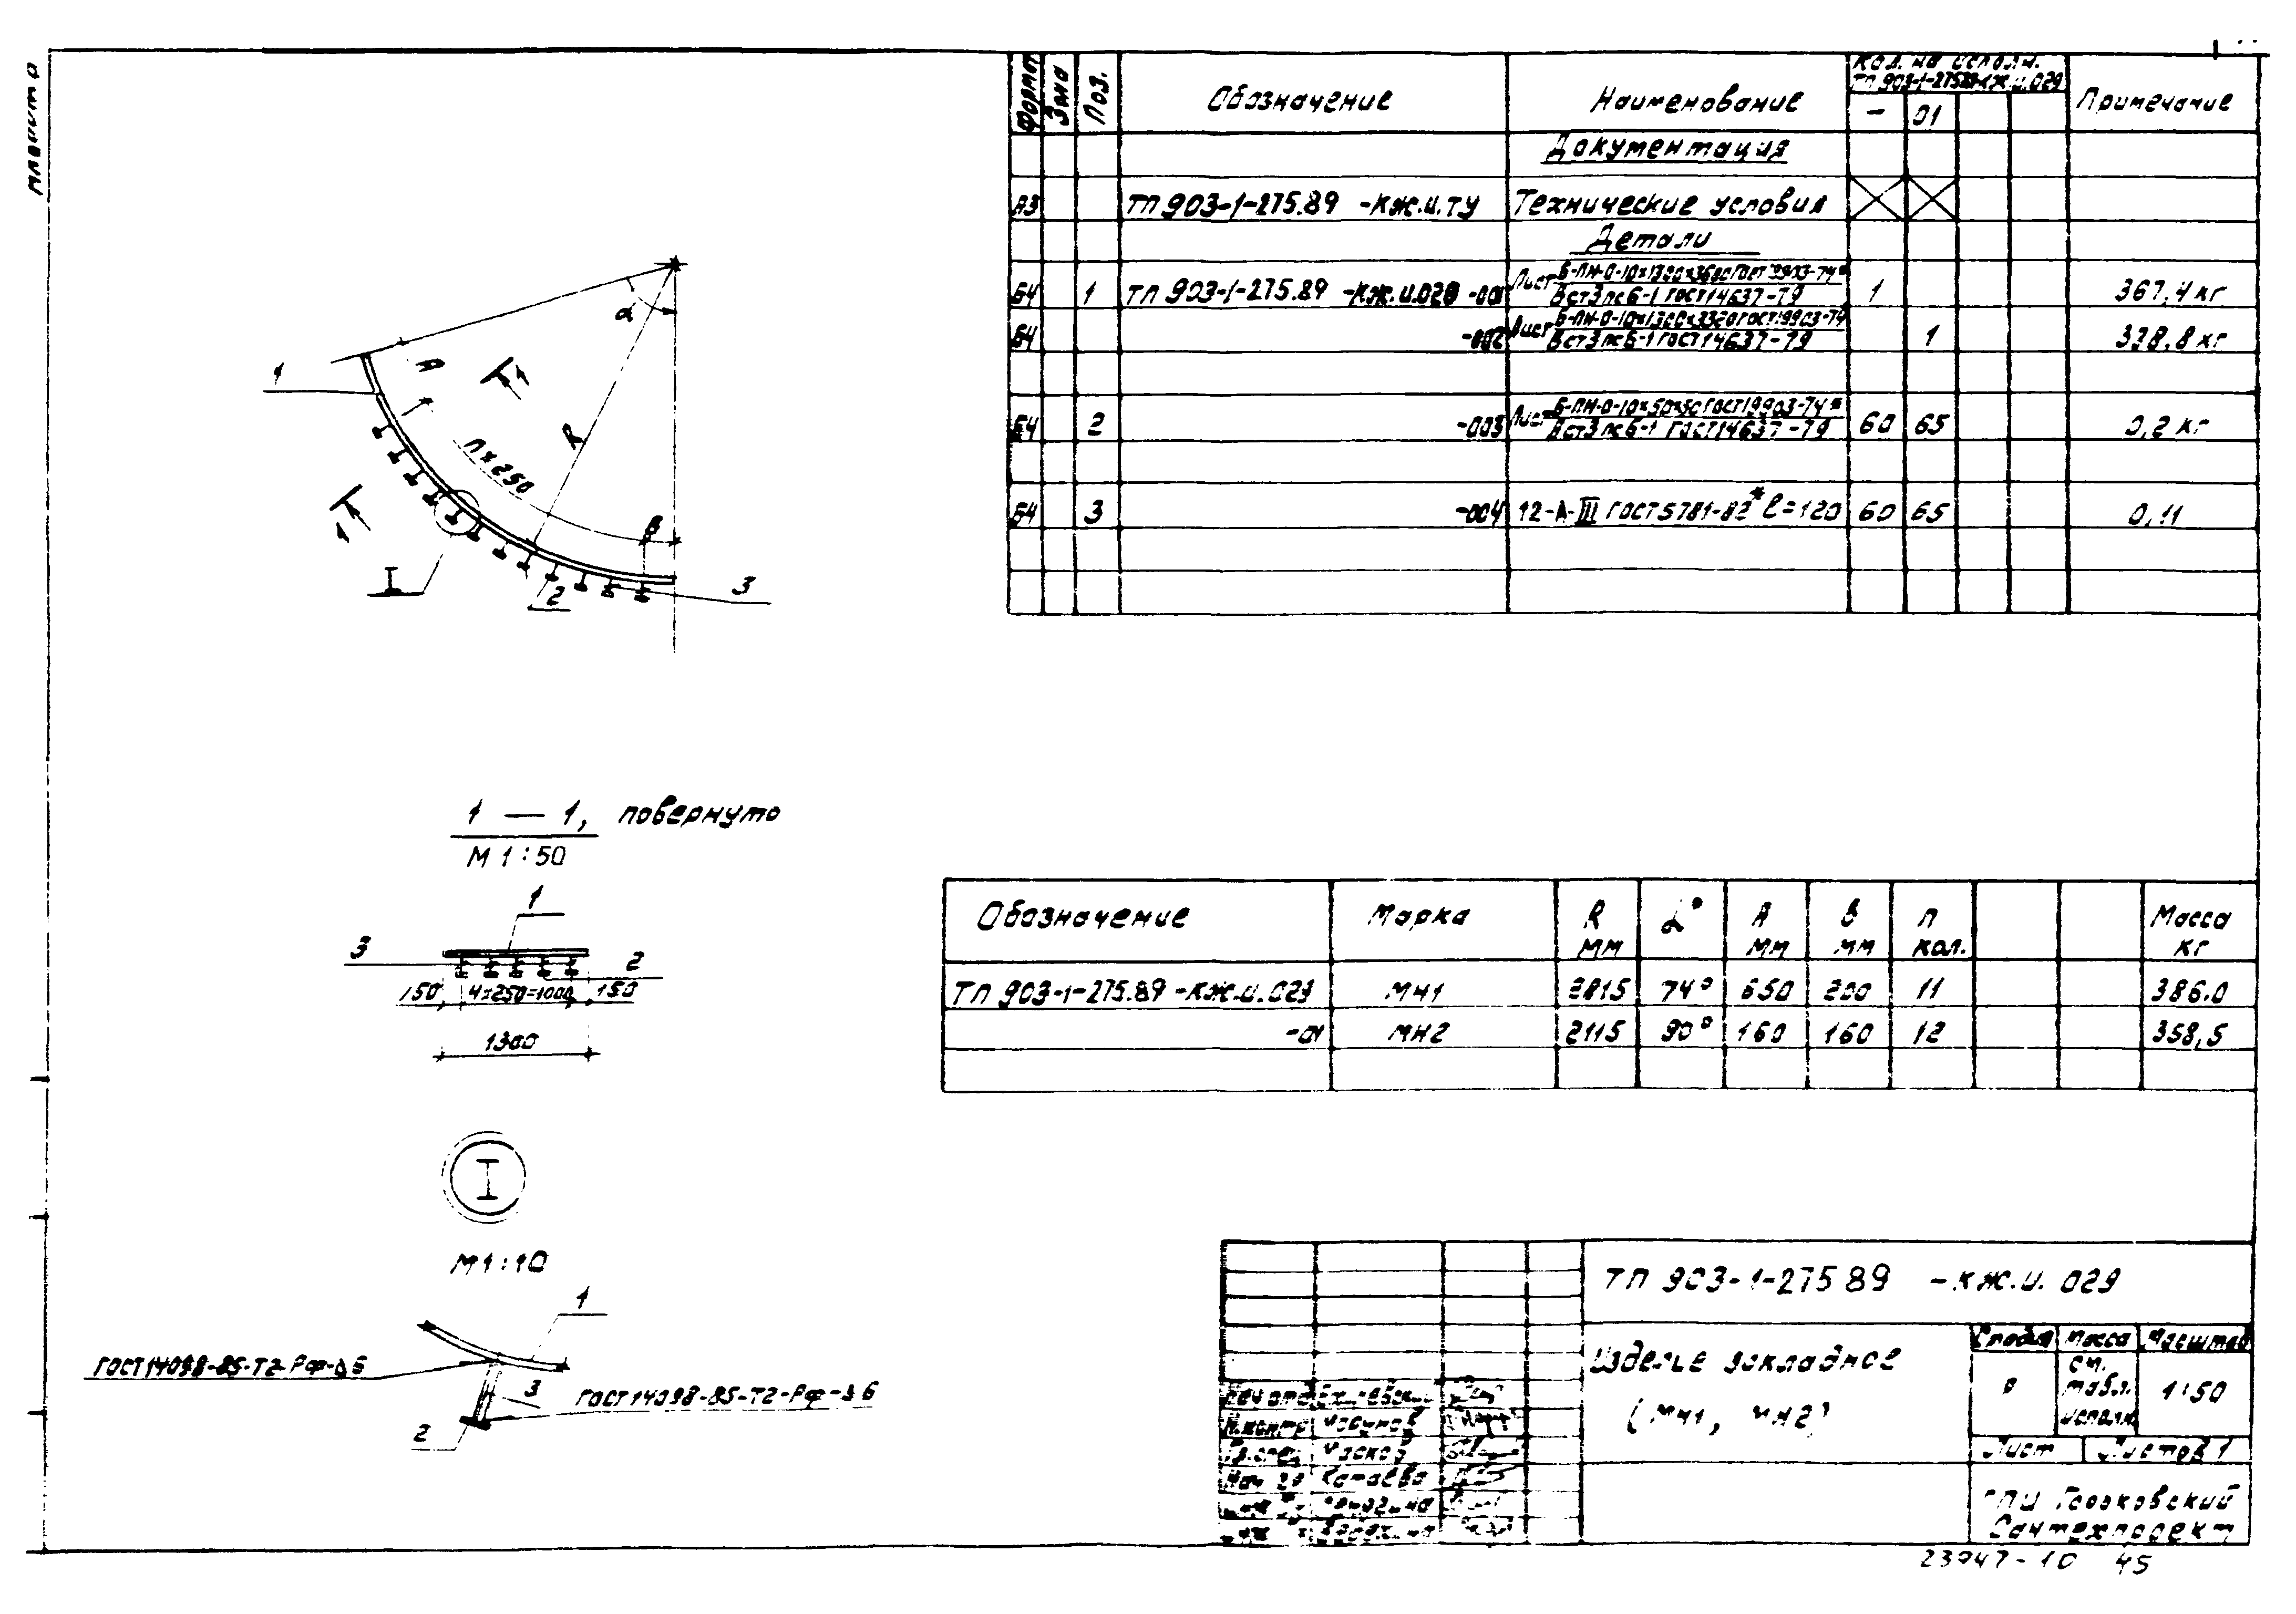 Формат Зона Поз. Обозначение Наименование Кол. на исполн. ТП 903-1-275.89-КЖ.И.029 Примечание
- 01
Документация
А3 ТП 903-1-275.89 -КЖ.И.ТУ Технические условия
Детали
Б4 1 ТП 903-1-275.89 -КЖ.И.029 -001 Лист Б-ПН-О-10×1300×3600 ГОСТ 19903-74* 1 367,4 кг
ВСт3пс6-1 ГОСТ 14637-79
Б4 -002 Лист Б-ПН-О-10×1300×3320 ГОСТ 19903-74 1 338,8 кг
ВСт3пс6-1 ГОСТ 14637-79
Б4 2 -003 Лист Б-ПН-О-10×50×50 ГОСТ 19903-74* 60 65 0,2 кг
ВСт3пс6-1 ГОСТ 14637-79
Б4 3 -004 12-А-III ГОСТ 5781-82* l=120 60 65 0,11
α
А
1
1
R
n×250
В
1
I
2
3
1 — 1, повернуто
М 1:50
1
3
2
150 4×250=1000 150
1300
I
М 1:10
1
ГОСТ 14098-85-Т2-Рф-Δ6
3
ГОСТ 14098-85-Т2-Рф-Δ6
2
Обозначение Марка R мм α° А мм В мм n кол. Масса кг
ТП 903-1-275.89 -КЖ.И.029 МН1 2815 74° 650 200 11 386.0
-01 МН2 2115 90° 160 160 12 358,5
ТП 903-1-275 89 -КЖ.И. 029
Изделие закладное
(МН1, МН2)
Стадия Масса Масштаб
Р см. табл. исполн. 1:50
Лист Листов 1
Нач отд
Н.контр
Гл.спец
Катаева
ГПИ Горьковский
Сантехпроект
23947-10 45